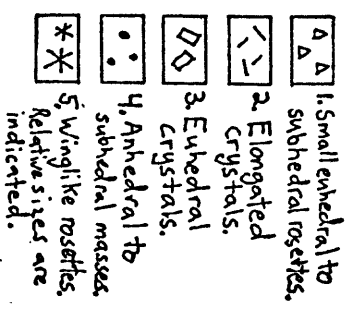 1. Small euhedral to
subhedral rosettes.
2. Elongated
crystals.
3. Euhedral
crystals.
4. Anhedral to
subhedral masses.
5. Winglike rosettes.
Relative sizes are
indicated.